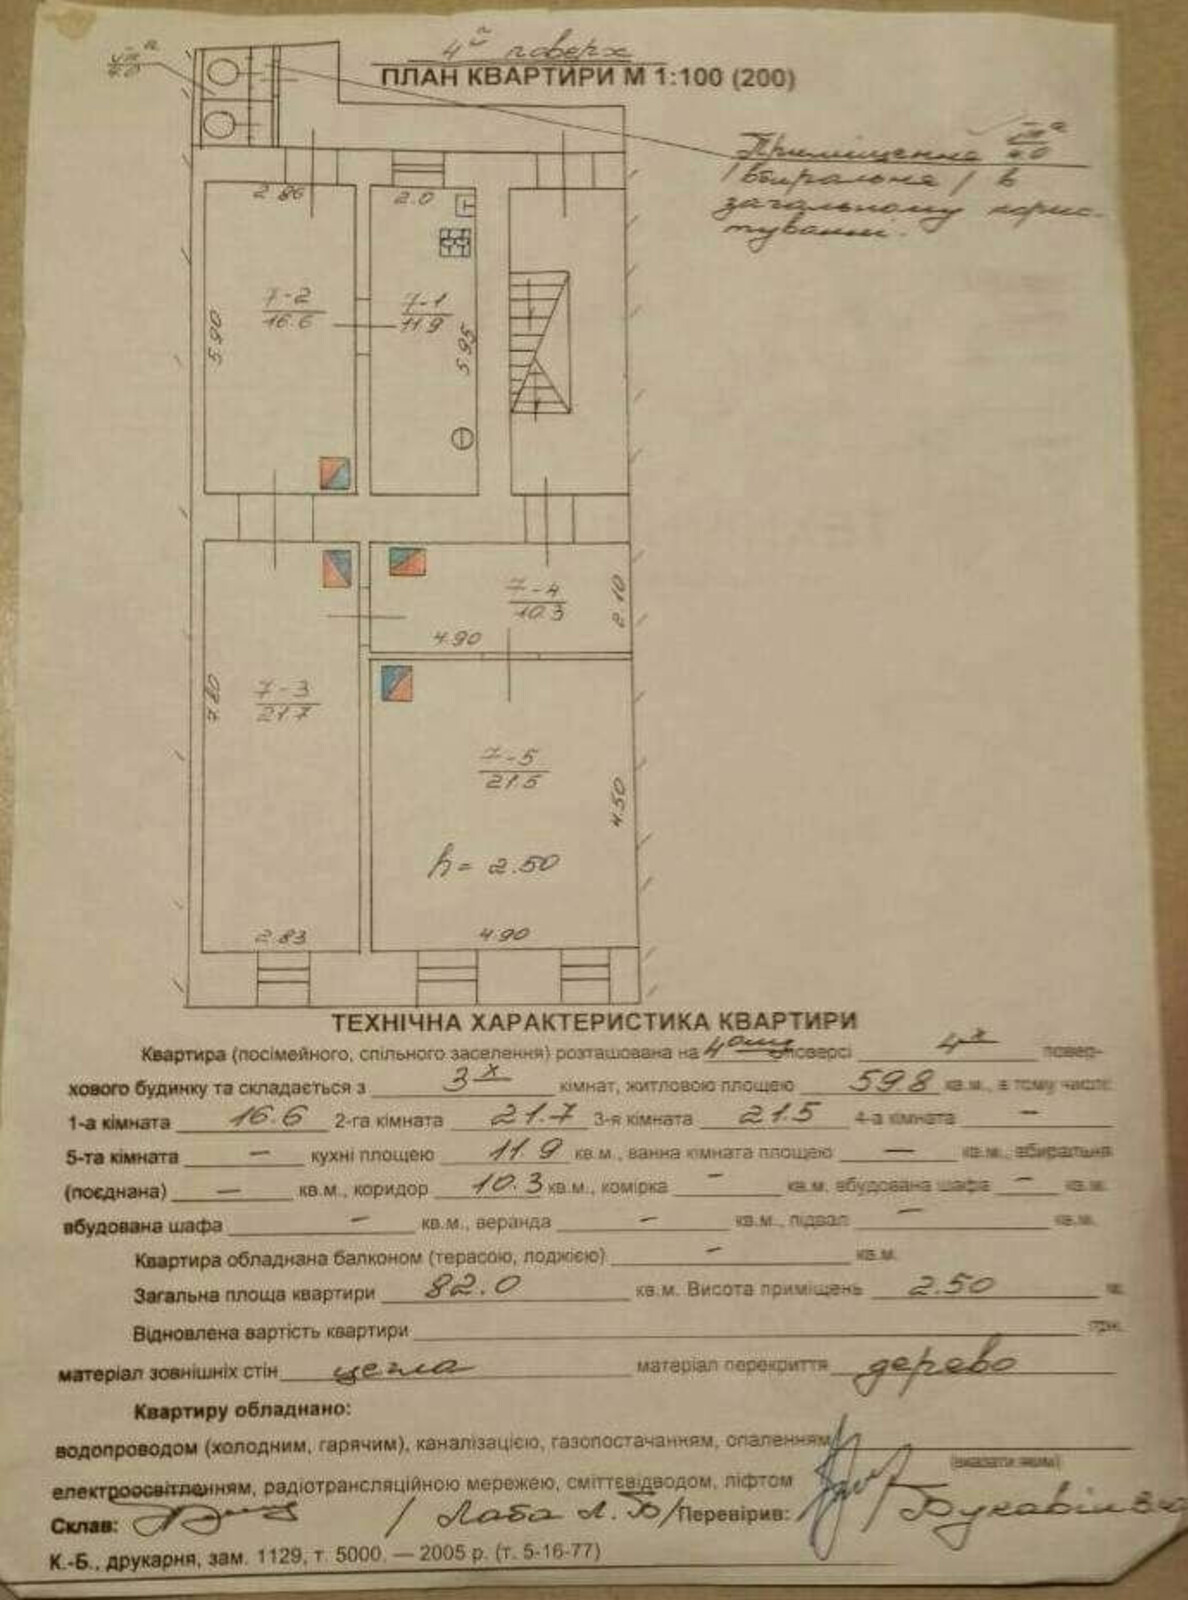 4й поверх
ПЛАН КВАРТИРИ М 1:100 (200)
Приміщення
/вбиральня/ в
загальному корис-
туванні.
2.86
2.0
7-2
16.6
7-1
11.9
5.90
5.95
7-4
10.3
2.10
4.90
7-3
21.7
7.80
7-5
21.5
4.50
h = 2.50
2.83
4.90
ТЕХНІЧНА ХАРАКТЕРИСТИКА КВАРТИРИ
Квартира (посімейного, спільного заселення) розташована на 4ому поверсі 4х повер-
хового будинку та складається з 3х кімнат, житловою площею 59.8 кв.м., в тому числі:
1-а кімната 16.6 2-га кімната 21.7 3-я кімната 21.5 4-а кімната —
5-та кімната — кухні площею 11.9 кв.м., ванна кімната площею — кв.м., вбиральня
(поєднана) — кв.м., коридор 10.3 кв.м., комірка — кв.м. вбудована шафа — кв.м.
вбудована шафа — кв.м., веранда — кв.м., підвал — кв.м.
Квартира обладнана балконом (терасою, лоджією) — кв.м.
Загальна площа квартири 82.0 кв.м. Висота приміщень 2.50 м.
Відновлена вартість квартири грн.
матеріал зовнішніх стін цегла матеріал перекриття дерево
Квартиру обладнано:
водопроводом (холодним, гарячим), каналізацією, газопостачанням, опаленням
(вказати яким)
електроосвітленням, радіотрансляційною мережею, сміттєвідводом, ліфтом
Склав: / Лаба Л. Б/ Перевірив:
К.-Б., друкарня, зам. 1129, т. 5000. — 2005 р. (т. 5-16-77)